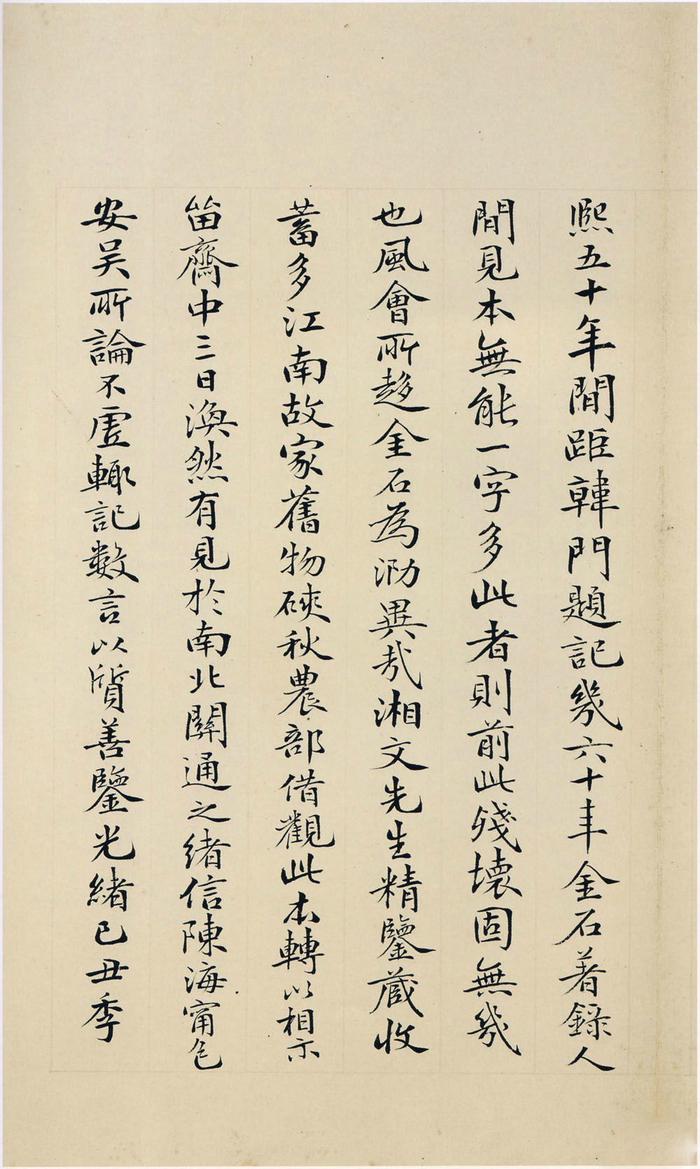 熙五十年間距韓門題記幾六十年金石著錄人
間見本無能一字多此者則前此殘壞固無幾
也風會所趍金石為泐異哉湘文先生精鑒藏收
蓄多江南故家舊物硤秋農部借觀此本轉以相示
留齋中三日渙然有見於南北關通之緒信陳海甯包
安吴所論不虛輙記數言以質善鑒光緒己丑季